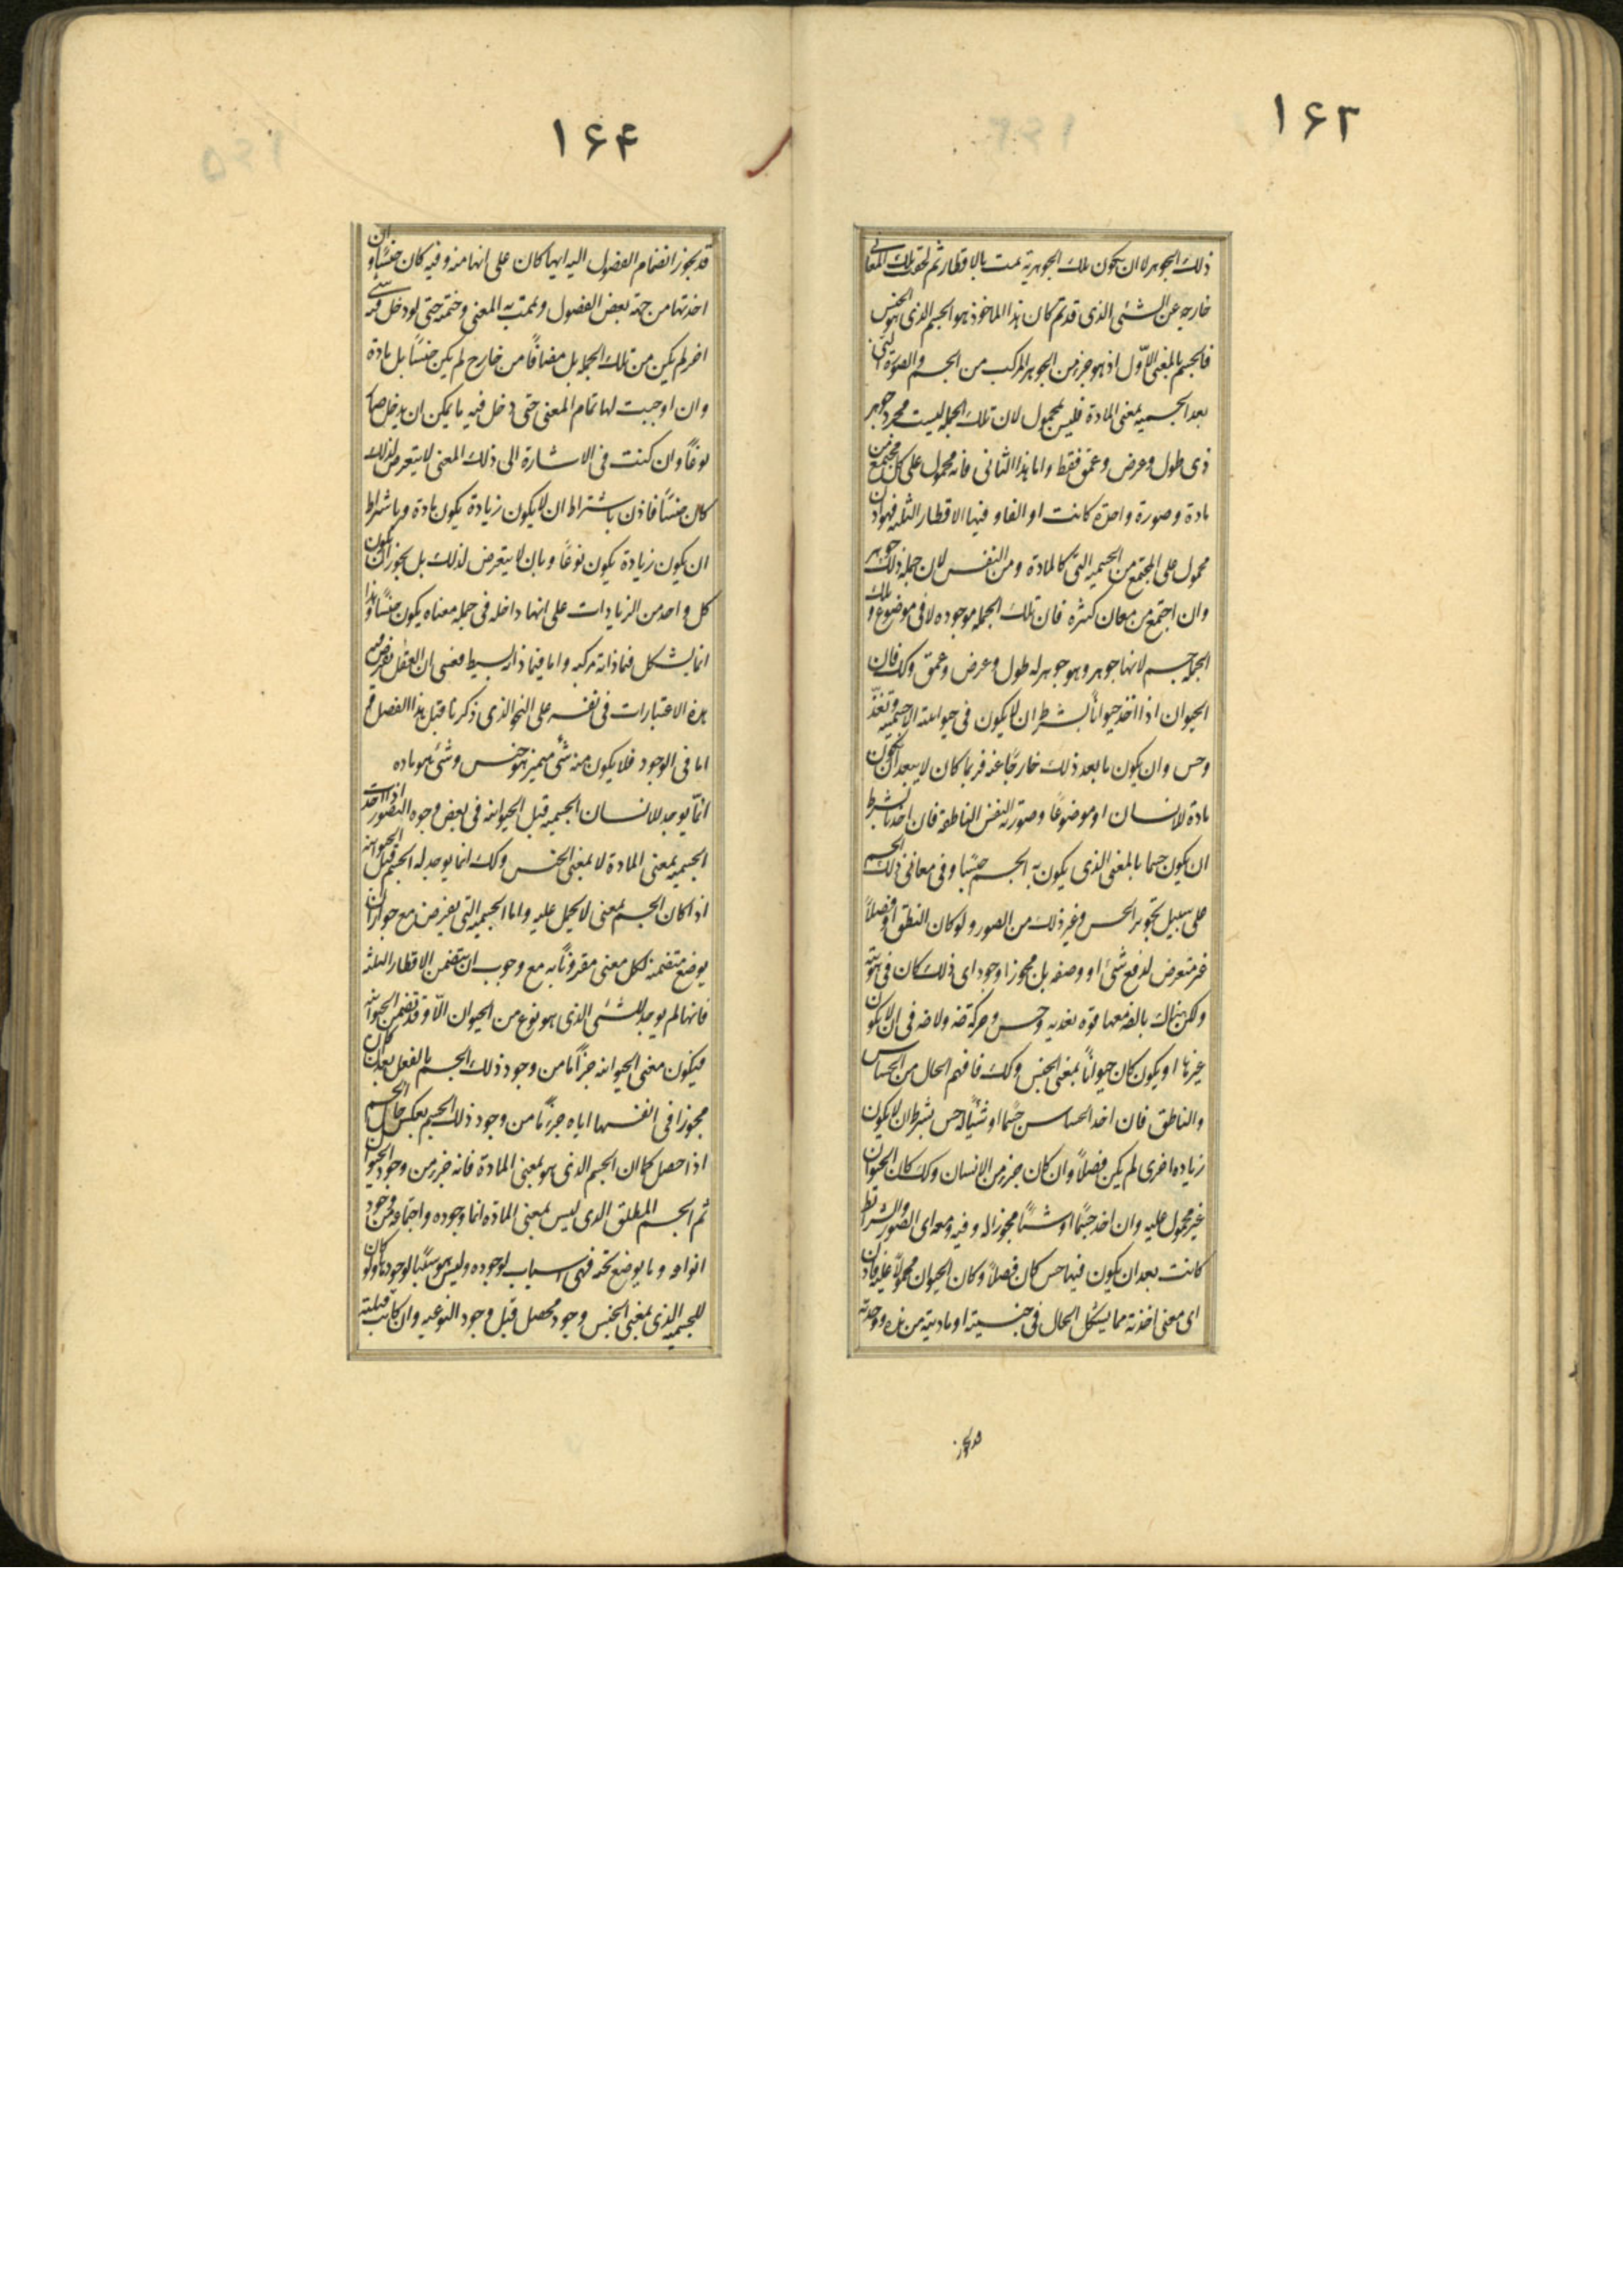 ۱۶۳
ذلك الجوهر لا ان يكون تلك الجوهرية تمت بالاقطار ثم لحقت تلك المعانى
خارجه عن الشئ الذى قد تم كان هذا الماخوذ هو الجسم الذى هو الجنس
فالجسم بالمعنى الاوّل اذ هو جزء من الجوهر المركب من الجسم والصورة التى
بعد الجسمية بمعنى المادة فليس بمحمول لان تلك الجملة ليست بمجرد جوهر
ذى طول وعرض وعمق فقط واما هذا الثانى فانه محمول على كل مجتمع من
مادة وصورة واحدة كانت او الفا وفيها الاقطار الثلثه فهو اذن
محمول على المجتمع من الجسمية التى كالمادة ومن النفس لان جملة ذلك جوهر
وان اجتمع من معان كثيرة فان تلك الجملة موجوده لا فى موضوع وتلك
الجملة جسم لانها جوهر وهو جوهر له طول وعرض وعمق وكك فان
الحيوان اذا اخذ حيواناً بشرط ان لا يكون فى حيوانيته الا جسمية وتغذّ
وحس وان يكون ما بعد ذلك خارجًا عنه فربما كان لا يبعد ان يكون
مادة للانسان او موضوعًا وصورته النفس الناطقة فان اخذ بشرط
ان يكون جسما بالمعنى الذى يكون به الجسم جنسًا وفى معانى ذلك الجسم
على سبيل تجويز الحس وغير ذلك من الصور ولو كان النطق او فصلاً
غير متعرض لدفع شئ او وضعه بل مجوزا وجود اى ذلك كان فى هويته
ولكن هناك بالضه معها قوه تغذيه وحس وحركة ضه ولا ضه فى ان لا يكون
غيرها او يكون كان حيواناً بمعنى الجنس وكك فافهم الحال من الحساس
والناطق فان اخذ الحساس جسمًا او شيئًا له حس بشرط ان لا يكون
زياده اخرى لم يكن فصلاً وان كان جزء من الانسان وكك كان الحيوان
غير محمول عليه وان اخذ جسمًا او شيئًا مجوزا له وفيه ومعه اى الصور والشرائط
كانت بعد ان يكون فيها حس كان فصلاً وكان الحيوان محمولاً عليه فاذن
اى معنى اخذته مما يشكل الحال فى جنسيته او ماديته من هذه وجدته
قد يجوز
۱۶۴
قد يجوز انضمام الفصول اليه ايها كان على انها منه وفيه كان جنسًا وان
اخذتها من جهة بعض الفصول وتممت به المعنى وختمته حتى لو دخل فيه شئ
اخر لم يكن من تلك الجملة بل مضافًا من خارج لم يكن جنسًا بل مادة
وان اوجبت لها تمام المعنى حتى دخل فيه ما يمكن ان يدخل صار
نوعًا وان كنت فى الاشارة الى ذلك المعنى لا يتعرض لذلك
كان جنسًا فاذن باشتراط ان لا يكون زيادة يكون مادة وباشتراط
ان يكون زيادة يكون نوعًا وبان لا يتعرض لذلك بل يجوز ان يكون
كل واحد من الزيادات على انها داخله فى جملة معناه يكون جنسًا وهذا
انما يشكل فيما ذاته مركبه واما فيما ذاته بسيط فعسى ان العقل يفرض فيه
هذه الاعتبارات فى نفسه على النحو الذى ذكرنا قبل هذا الفصل
اما فى الوجود فلا يكون منه شئ متميز هو جنس وشئ هو ماده
انّما يوجد للانسان الجسمية قبل الحيوانيه فى بعض وجوه التصور اذا اخذت
الجسمية بمعنى المادة لا بمعنى الجنس وكك انما يوجد له الجسم قبل الحيوانيه
اذا كان الجسم بمعنى لا يحمل عليه واما الجسمية التى يفرض مع جواز ان
يوضع متضمنة لكل معنى مقرونًا به مع وجوب ان يتضمن الاقطار الثلثه
فانها لم يوجد للشئ الذى هو نوع من الحيوان الّا وقد تضمن الحيوانيه
فيكون معنى الحيوانيه جزأ ما من وجود ذلك الجسم بالفعل بعد ان كان
مجوزا فى انفسها اياه جزءً ما من وجود ذلك الجسم بعكس حال الجسم
اذا حصل كما ان الجسم الذى هو بمعنى المادة فانه جزء من وجود الحيوان
ثم الجسم المطلق الذى ليس بمعنى المادّه انما وجوده واجتماعه من وجود
انواعه وما يوضع تحته فهى اسباب لوجوده وليس هو سببًا لوجودها ولو كان
للجسميه الذى بمعنى الجنس وجود محصل قبل وجود النوعيه وان كانت قبليته